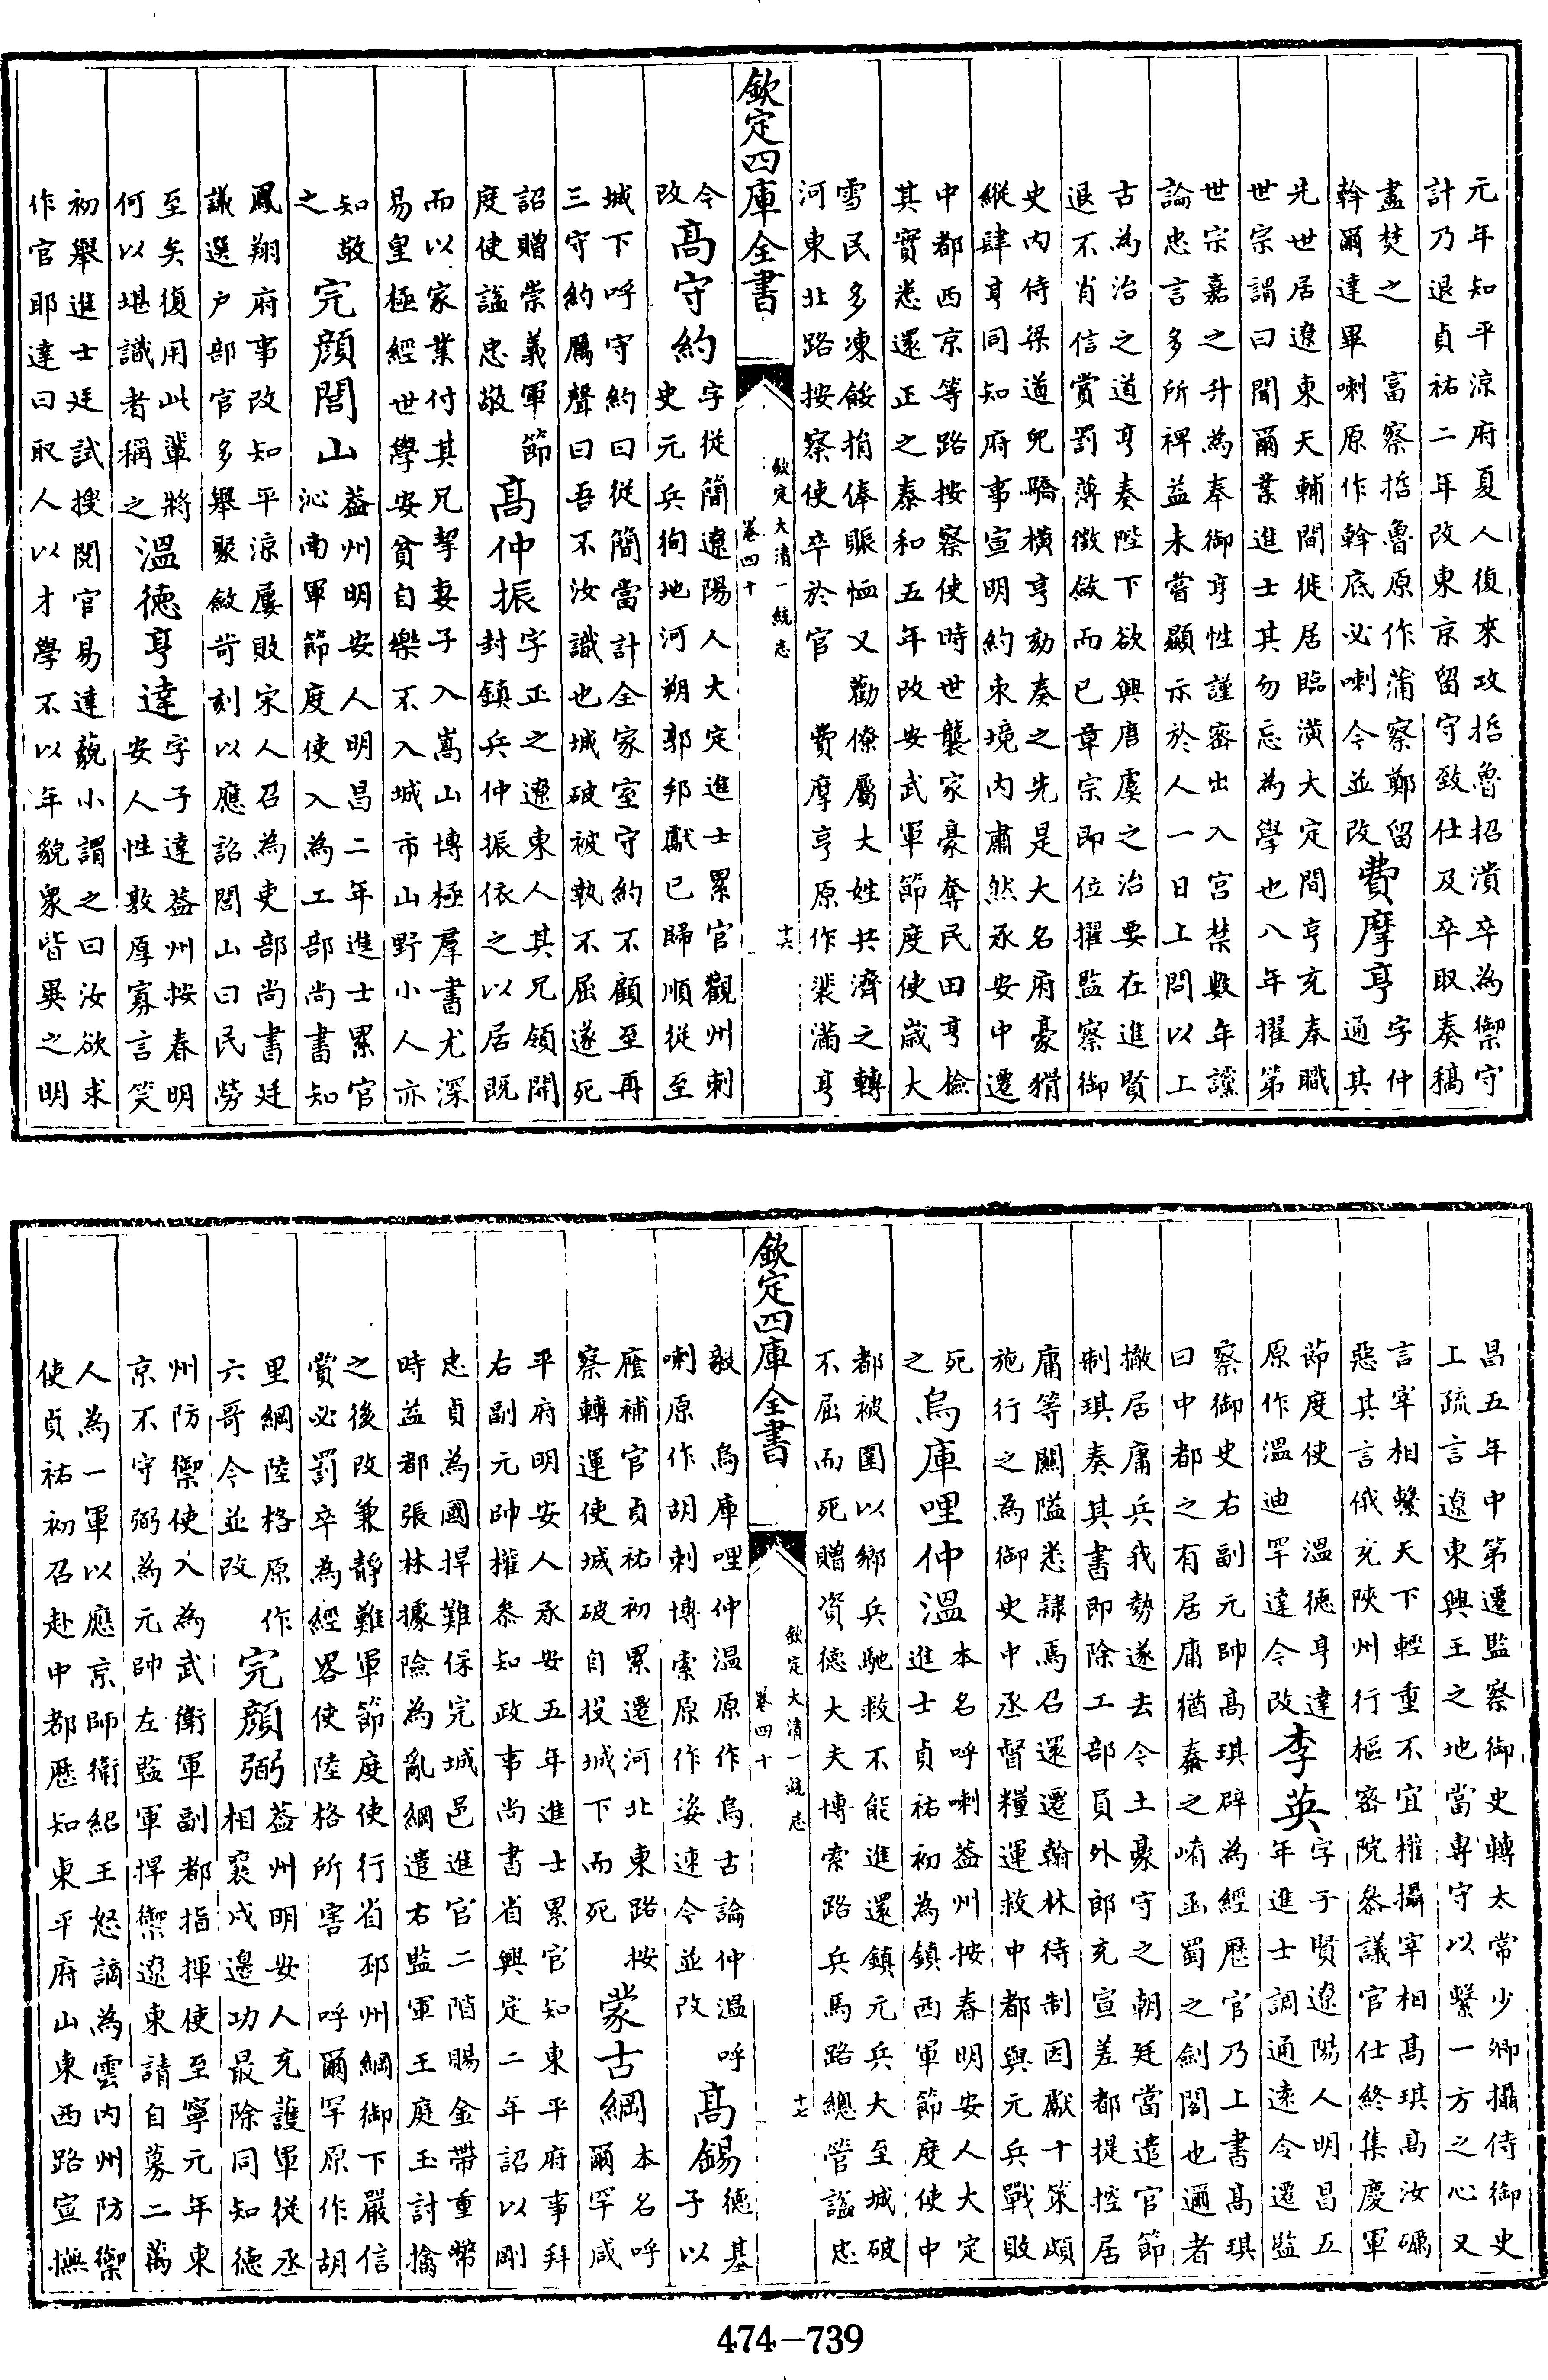 元年知平涼府夏人復來攻哲魯招潰卒為禦守
計乃退貞祐二年改東京留守致仕及卒取奏稿
盡焚之　富察哲魯原作蒲察鄭留
斡爾達畢喇原作斡底必喇今並改
費摩亨
字仲
通其
先世居遼東天輔間徙居臨潢大定間亨充奉職
世宗謂曰聞爾業進士其勿忘為學也八年擢第
世宗嘉之升為奉御亨性謹密出入宮禁數年讜
論忠言多所裨益未嘗顯示於人一日上問以上
古為治之道亨奏陛下欲興唐虞之治要在進賢
退不肖信賞罰薄徵斂而已章宗即位擢監察御
史内侍梁道兒驕橫亨劾奏之先是大名府豪猾
縱肆亨同知府事宣明約束境内肅然承安中遷
中都西京等路按察使時世襲家豪奪民田亨檢
其實悉還正之泰和五年改安武軍節度使歲大
雪民多凍餒捐俸賑恤又勸僚屬大姓共濟之轉
河東北路按察使卒於官　費摩亨原作裴滿亨
欽定四庫全書
欽定大清一統志
卷四十
十六
今
改
高守約
字從簡遼陽人大定進士累官觀州刺
史元兵徇地河朔郭邦獻已歸順從至
城下呼守約曰從簡當計全家室守約不顧至再
三守約厲聲曰吾不汝識也城破被執不屈遂死
詔贈崇義軍節
度使諡忠敬
高仲振
字正之遼東人其兄領開
封鎮兵仲振依之以居既
而以家業付其兄挈妻子入嵩山博極羣書尤深
易皇極經世學安貧自樂不入城市山野小人亦
知敬
之
完顏閭山
益州明安人明昌二年進士累官
沁南軍節度使入為工部尚書知
鳳翔府事改知平涼屢敗宋人召為吏部尚書廷
議選戶部官多舉聚斂苛刻以應詔閭山曰民勞
至矣復用此輩將
何以堪識者稱之
溫德亨達
字子達益州按春明
安人性敦厚寡言笑
初舉進士廷試搜閱官易達藐小謂之曰汝欲求
作官耶達曰取人以才學不以年貌衆皆異之明
昌五年中第遷監察御史轉太常少卿攝侍御史
上疏言遼東興王之地當專守以繫一方之心又
言宰相繫天下輕重不宜權攝宰相高琪高汝礪
惡其言俄充陝州行樞密院參議官仕終集慶軍
節度使　溫德亨達
原作溫迪罕達今改
李英
字子賢遼陽人明昌五
年進士調通遠令遷監
察御史右副元帥高琪辟為經歷官乃上書高琪
曰中都之有居庸猶秦之崤函蜀之劍閣也邇者
撤居庸兵我勢遂去今土豪守之朝廷當遣官節
制琪奏其書即除工部員外郎充宣差都提控居
庸等關隘悉隸焉召還遷翰林待制因獻十策頗
施行之為御史中丞督糧運救中都與元兵戰敗
死
之
烏庫哩仲溫
本名呼喇益州按春明安人大定
進士貞祐初為鎮西軍節度使中
都被圍以鄉兵馳救不能進還鎮元兵大至城破
不屈而死贈資德大夫博索路兵馬路總管諡忠
毅　烏庫哩仲溫原作烏古論仲溫呼
喇原作胡剌博索原作婆速今並改
高錫
德基
子以
廕補官貞祐初累遷河北東路按
察轉運使城破自投城下而死
蒙古綱
本名呼
爾罕咸
平府明安人承安五年進士累官知東平府事拜
右副元帥權參知政事尚書省興定二年詔以剛
忠貞為國捍難保完城邑進官二階賜金帶重幣
時益都張林據險為亂綱遣右監軍王庭玉討擒
之後改兼靜難軍節度使行省邳州綱御下嚴信
賞必罰卒為經畧使陸格所害　呼爾罕原作胡
里綱陸格原作
六哥今並改
完顏弼
益州明安人充護軍從丞
相襄戍邊功最除同知德
州防禦使入為武衛軍副都指揮使至寧元年東
京不守弼為元帥左監軍捍禦遼東請自募二萬
人為一軍以應京師衛紹王怒謫為雲内州防禦
使貞祐初召赴中都歷知東平府山東西路宣撫
欽定四庫全書
欽定大清一統志
卷四十
十七
474—739